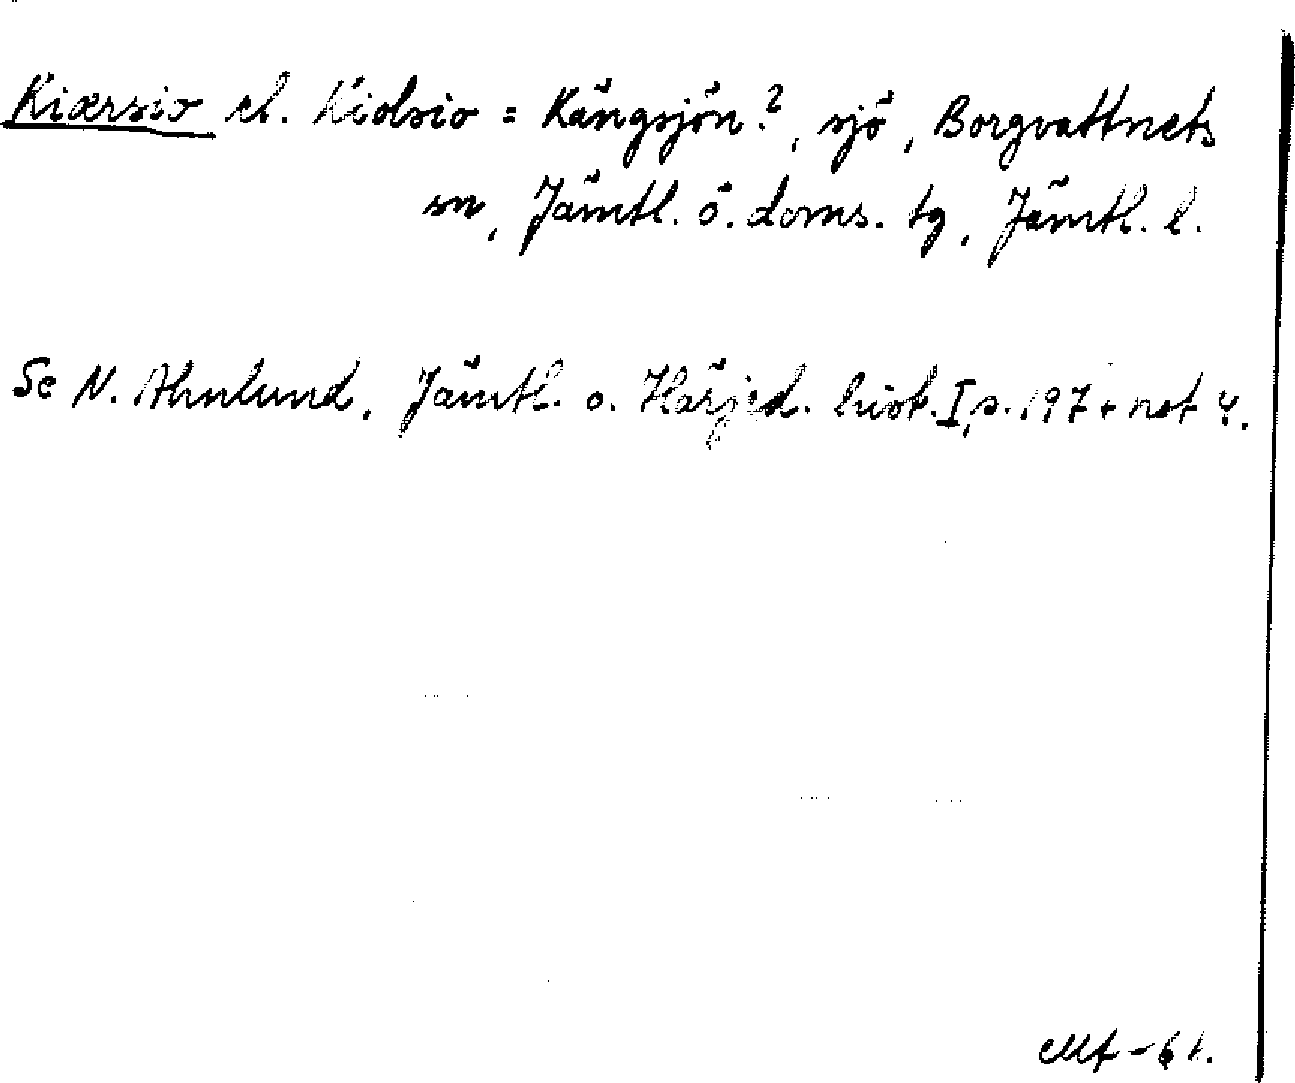 Kiærsio el. Kiolsio = Kängsjön?, sjö, Borgvattnets
sn, Jämtl. ö. doms. tg, Jämtl. l.
Se N. Ahnlund, Jämtl. o. Härjed. hist. I, s. 197 + not 4.
Mt - 61.